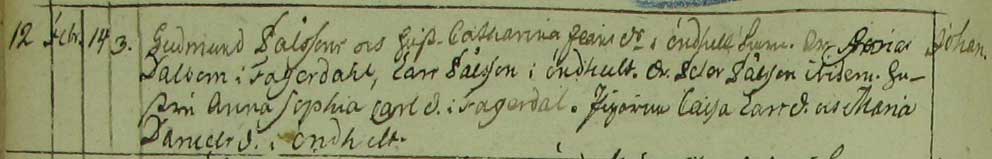 12 Febr. 14 3. Gudmund Pålsson och hust. Catharina Jeans dr i Öndhult. Sum. Dr. Johan.
Dalbom i Fagerdahl, Carl Pålsson i Öndhult. Dr. Peter Pålsson ibidem. Hu-
stru Anna Sophia Carl d. i Fagerdal. Pigorna Caisa Lars d. och Maria
Daniels d. i Öndhult.